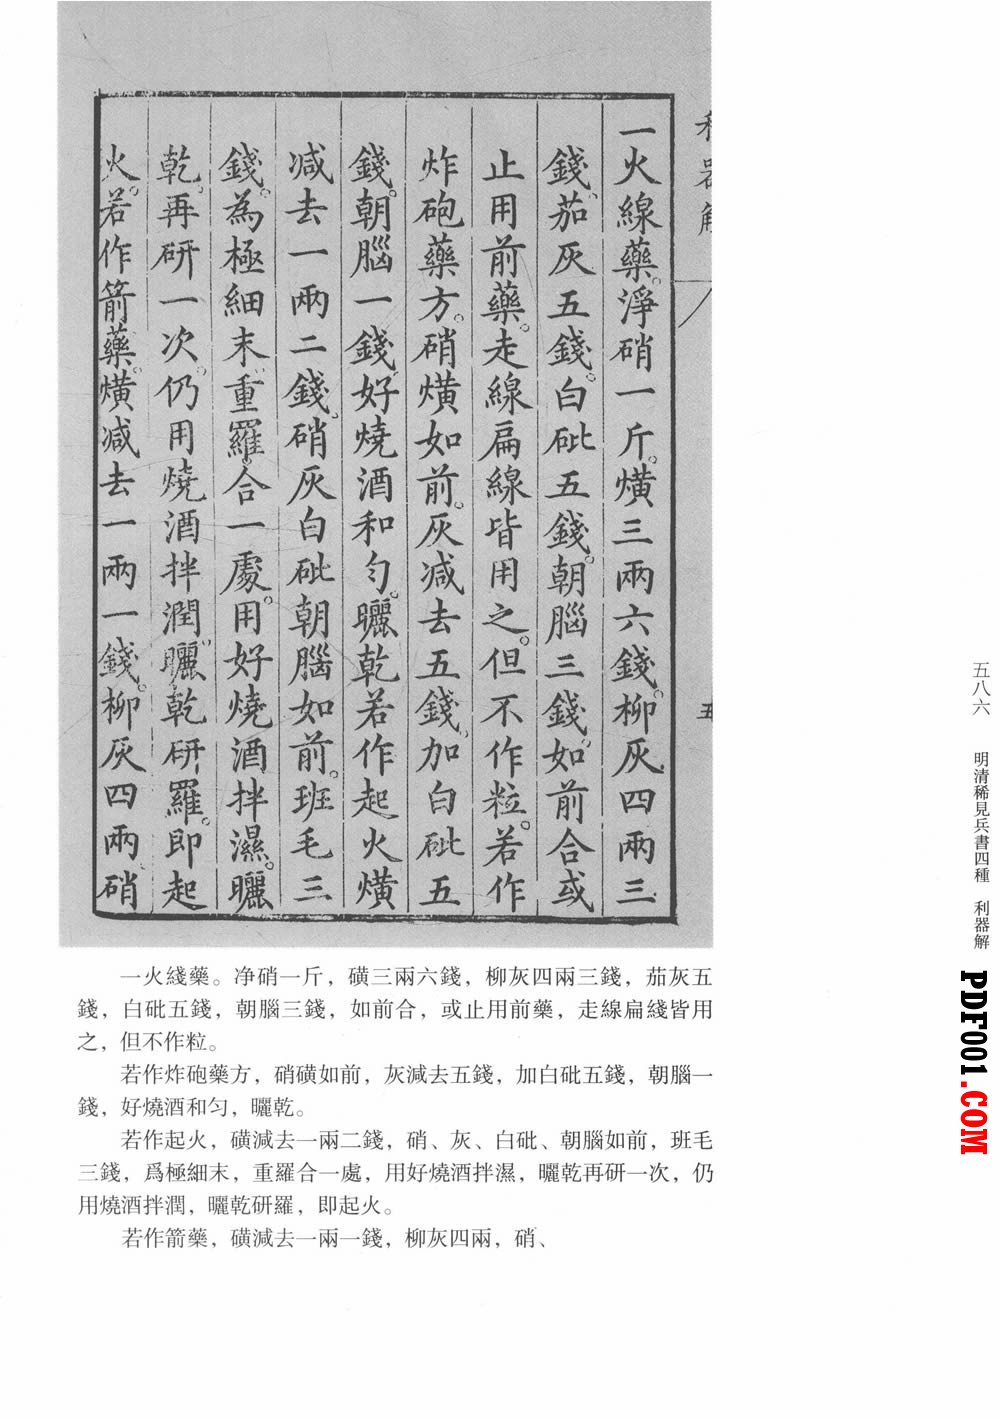 利器解
五
一火線藥。淨硝一斤。燌三兩六錢。柳灰四兩三
錢。茄灰五錢。白砒五錢。朝腦三錢。如前合或
止用前藥。走線扁線皆用之。但不作粒。若作
炸砲藥方。硝燌如前。灰減去五錢。加白砒五
錢。朝腦一錢。好燒酒和勻。曬乾若作起火燌
減去一兩二錢。硝灰白砒朝腦如前。班毛三
錢。為極細末重羅。合一處。用好燒酒拌濕。曬
乾。再研一次。仍用燒酒拌潤。曬乾研羅。即起
火。若作箭藥。燌減去一兩一錢。柳灰四兩硝
一火綫藥。净硝一斤，磺三兩六錢，柳灰四兩三錢，茄灰五
錢，白砒五錢，朝腦三錢，如前合，或止用前藥，走線扁綫皆用
之，但不作粒。
若作炸砲藥方，硝磺如前，灰減去五錢，加白砒五錢，朝腦一
錢，好燒酒和匀，曬乾。
若作起火，磺減去一兩二錢，硝、灰、白砒、朝腦如前，班毛
三錢，爲極細末，重羅合一處，用好燒酒拌濕，曬乾再研一次，仍
用燒酒拌潤，曬乾研羅，即起火。
若作箭藥，磺減去一兩一錢，柳灰四兩，硝、
五八六　明清稀見兵書四種　利器解
PDF001.COM